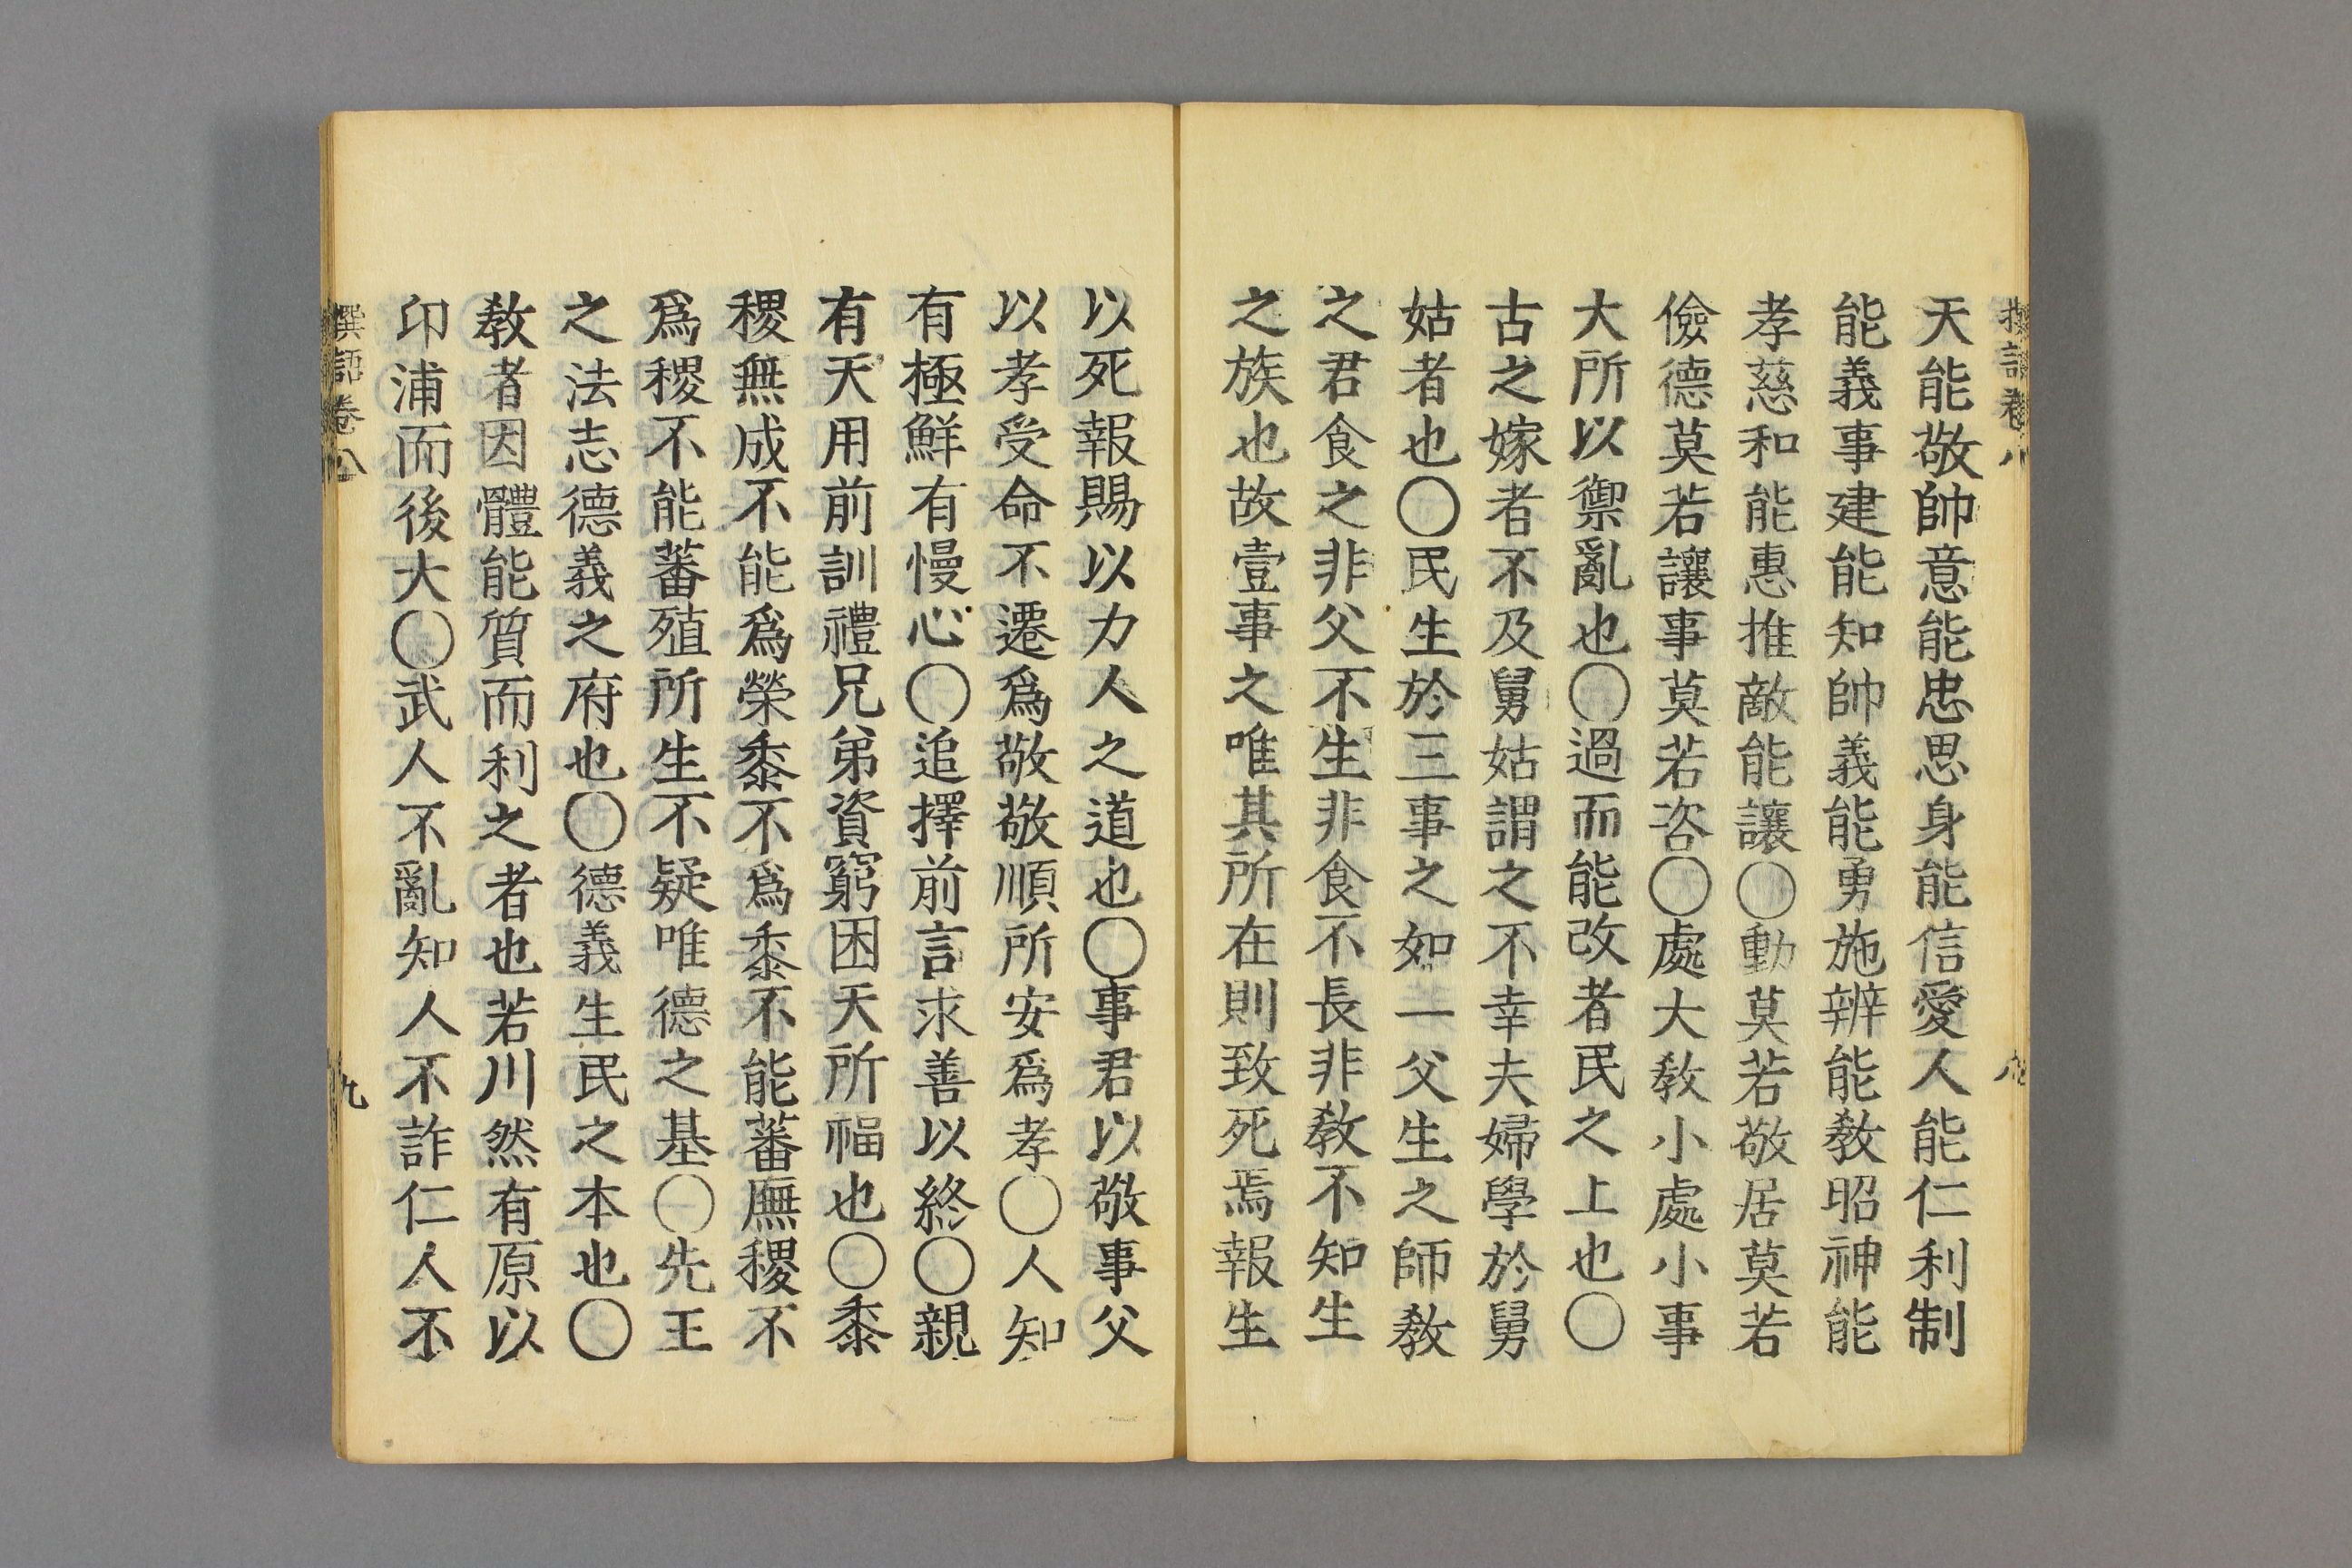 撰語卷八
八
天能敬帥意能忠思身能信愛人能仁利制
能義事建能知帥義能勇施辨能教昭神能
孝慈和能惠推敵能讓〇動莫若敬居莫若
儉德莫若讓事莫若咨〇處大教小處小事
大所以禦亂也〇過而能改者民之上也〇
古之嫁者不及舅姑謂之不幸夫婦學於舅
姑者也〇民生於三事之如一父生之師教
之君食之非父不生非食不長非教不知生
之族也故壹事之唯其所在則致死焉報生
以死報賜以力人之道也〇事君以敬事父
以孝受命不遷爲敬敬順所安爲孝〇人知
有極鮮有慢心〇追擇前言求善以終〇親
有天用前訓禮兄弟資窮困天所福也〇黍
稷無成不能爲榮黍不爲黍不能蕃廡稷不
爲稷不能蕃殖所生不疑唯德之基〇先王
之法志德義之府也〇德義生民之本也〇
教者因體能質而利之者也若川然有原以
卬浦而後大〇武人不亂知人不詐仁人不
撰語卷八
九